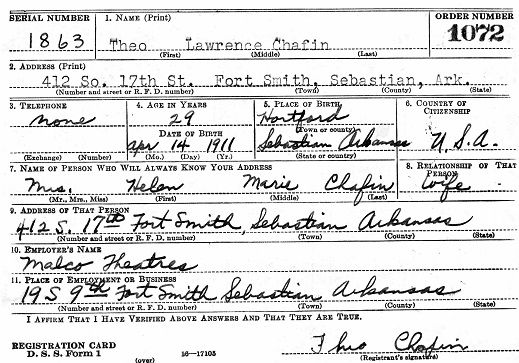 SERIAL NUMBER 1. NAME (Print) ORDER NUMBER
1863 Theo Lawrence Chafin 1072
(First) (Middle) (Last)
2. ADDRESS (Print)
412 So. 17th St. Fort Smith, Sebastian, Ark.
(Number and street or R. F. D. number) (Town) (County) (State)
3. TELEPHONE 4. AGE IN YEARS 5. PLACE OF BIRTH 6. COUNTRY OF CITIZENSHIP
none 29 Hartford
(Town or county)
DATE OF BIRTH
Apr 14 1911 Sebastian Arkansas U.S.A.
(Exchange) (Number) (Mo.) (Day) (Yr.) (State or country)
7. NAME OF PERSON WHO WILL ALWAYS KNOW YOUR ADDRESS 8. RELATIONSHIP OF THAT PERSON
Mrs. Helen Marie Chafin Wife
(Mr., Mrs., Miss) (First) (Middle) (Last)
9. ADDRESS OF THAT PERSON
412 S. 17th Fort Smith, Sebastian Arkansas
(Number and street or R. F. D. number) (Town) (County) (State)
10. EMPLOYER'S NAME
Malco Theatres
11. PLACE OF EMPLOYMENT OR BUSINESS
19 S 9th Fort Smith Sebastian Arkansas
(Number and street or R. F. D. number) (Town) (County) (State)
I AFFIRM THAT I HAVE VERIFIED ABOVE ANSWERS AND THAT THEY ARE TRUE.
REGISTRATION CARD
D. S. S. Form 1 (over) 16—17105
Theo Chafin
(Registrant's signature)